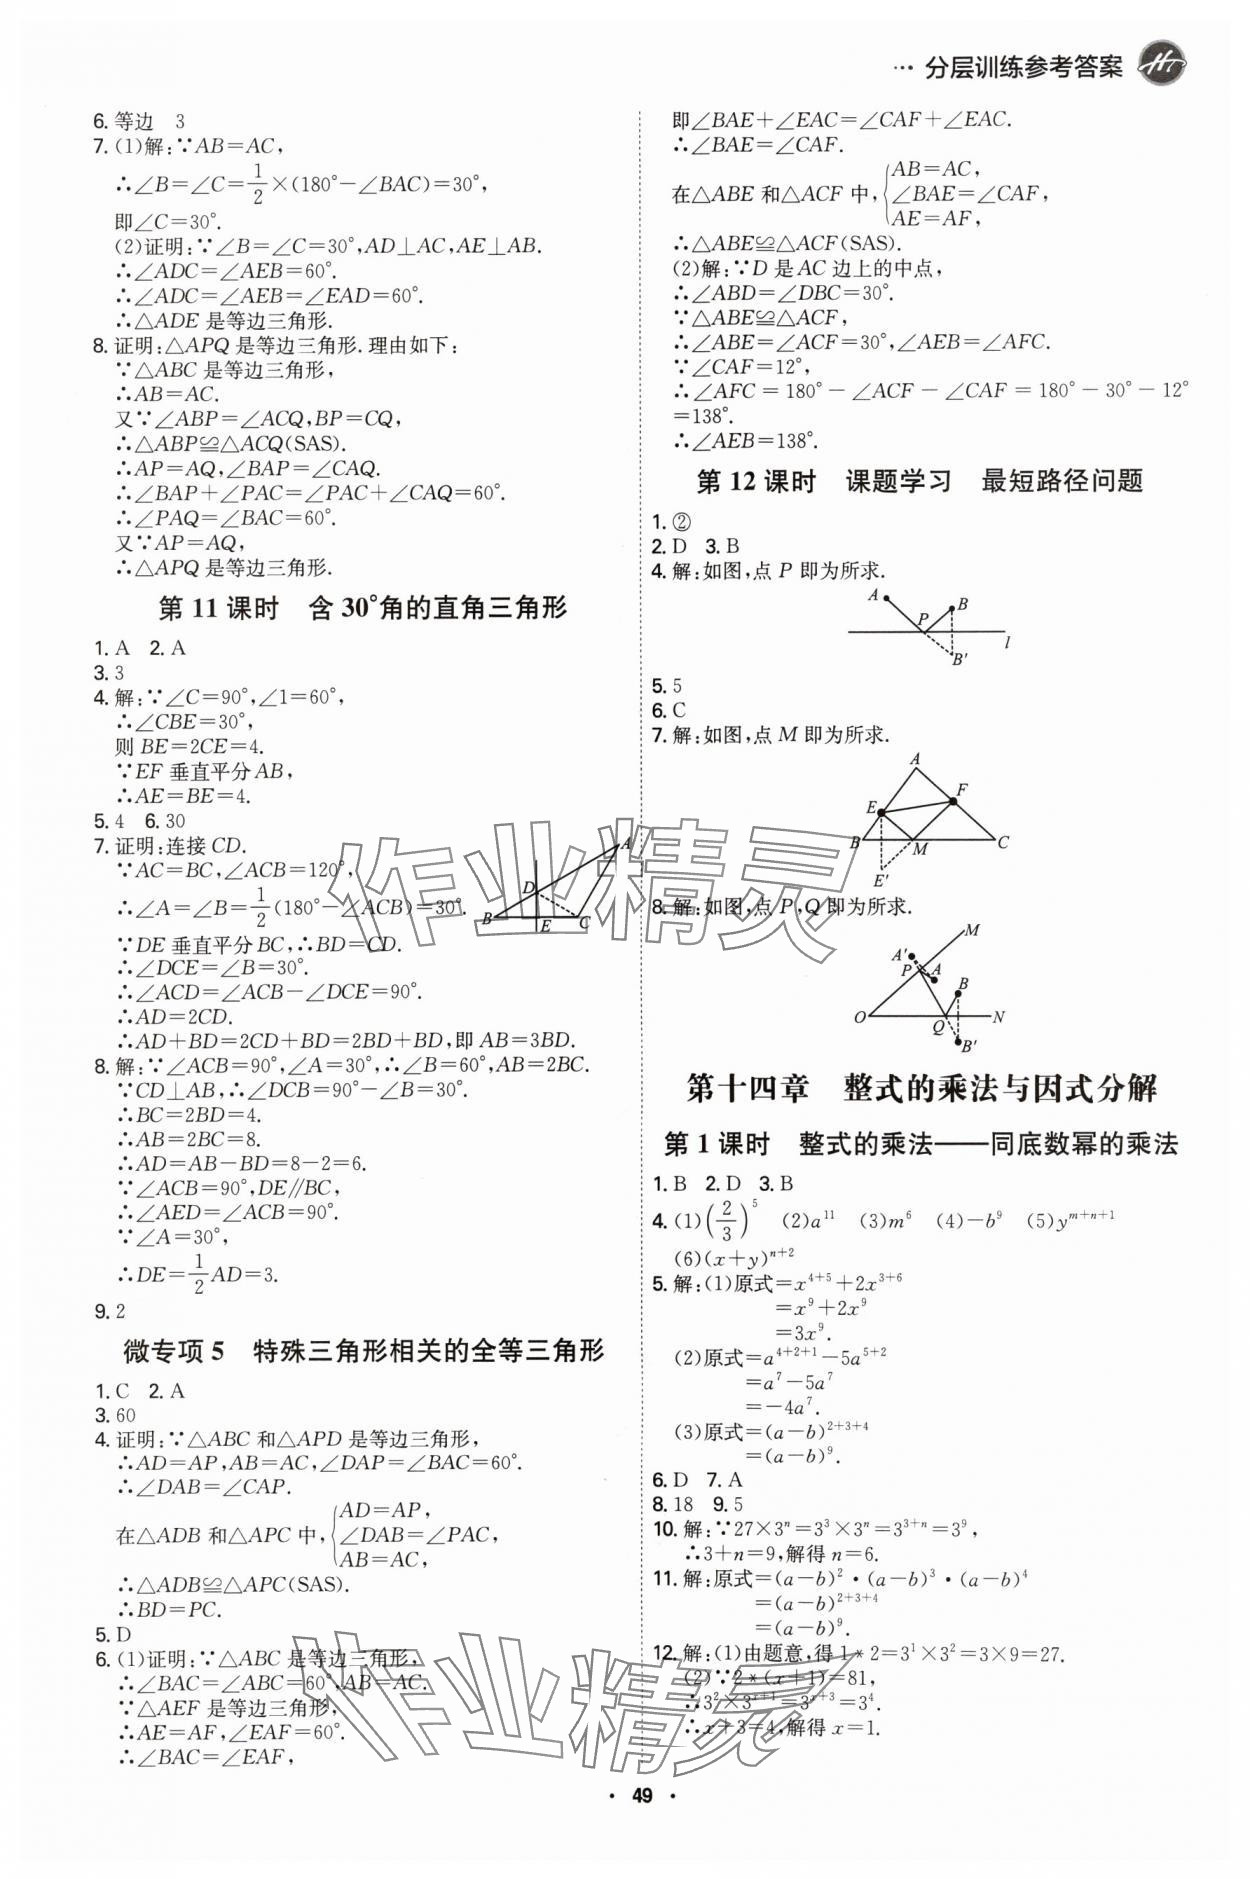 ··· 分层训练参考答案
6. 等边　3
7. (1)解:∵AB=AC,
∴∠B=∠C=1/2×(180°−∠BAC)=30°,
即∠C=30°.
(2)证明:∵∠B=∠C=30°,AD⊥AC,AE⊥AB.
∴∠ADC=∠AEB=60°.
∴∠ADC=∠AEB=∠EAD=60°.
∴△ADE 是等边三角形.
8. 证明:△APQ 是等边三角形.理由如下:
∵△ABC 是等边三角形,
∴AB=AC.
又∵∠ABP=∠ACQ,BP=CQ,
∴△ABP≌△ACQ(SAS).
∴AP=AQ,∠BAP=∠CAQ.
∴∠BAP+∠PAC=∠PAC+∠CAQ=60°.
∴∠PAQ=∠BAC=60°.
又∵AP=AQ,
∴△APQ 是等边三角形.
第 11 课时　含 30°角的直角三角形
1. A　2. A
3. 3
4. 解:∵∠C=90°,∠1=60°,
∴∠CBE=30°,
则 BE=2CE=4.
∵EF 垂直平分 AB,
∴AE=BE=4.
5. 4　6. 30
7. 证明:连接 CD.
∵AC=BC,∠ACB=120°,
∴∠A=∠B=1/2(180°−∠ACB)=30°.
∵DE 垂直平分 BC,∴BD=CD.
∴∠DCE=∠B=30°.
∴∠ACD=∠ACB−∠DCE=90°.
∴AD=2CD.
∴AD+BD=2CD+BD=2BD+BD,即 AB=3BD.
A
D
B
E
C
8. 解:∵∠ACB=90°,∠A=30°,∴∠B=60°,AB=2BC.
∵CD⊥AB,∴∠DCB=90°−∠B=30°.
∴BC=2BD=4.
∴AB=2BC=8.
∴AD=AB−BD=8−2=6.
∵∠ACB=90°,DE∥BC,
∴∠AED=∠ACB=90°.
∵∠A=30°,
∴DE=1/2AD=3.
9. 2
微专项 5　特殊三角形相关的全等三角形
1. C　2. A
3. 60
4. 证明:∵△ABC 和△APD 是等边三角形,
∴AD=AP,AB=AC,∠DAP=∠BAC=60°.
∴∠DAB=∠CAP.
在△ADB 和△APC 中,{AD=AP,
∠DAB=∠PAC,
AB=AC,
∴△ADB≌△APC(SAS).
∴BD=PC.
5. D
6. (1)证明:∵△ABC 是等边三角形,
∴∠BAC=∠ABC=60°,AB=AC.
∵△AEF 是等边三角形,
∴AE=AF,∠EAF=60°.
∴∠BAC=∠EAF,
即∠BAE+∠EAC=∠CAF+∠EAC.
∴∠BAE=∠CAF.
在△ABE 和△ACF 中,{AB=AC,
∠BAE=∠CAF,
AE=AF,
∴△ABE≌△ACF(SAS).
(2)解:∵D 是 AC 边上的中点,
∴∠ABD=∠DBC=30°.
∵△ABE≌△ACF,
∴∠ABE=∠ACF=30°,∠AEB=∠AFC.
∵∠CAF=12°,
∴∠AFC=180°−∠ACF−∠CAF=180°−30°−12°
=138°.
∴∠AEB=138°.
第 12 课时　课题学习　最短路径问题
1. ②
2. D　3. B
4. 解:如图,点 P 即为所求.
A
B
P
l
B′
5. 5
6. C
7. 解:如图,点 M 即为所求.
A
F
E
B
M
C
E′
8. 解:如图,点 P,Q 即为所求.
M
A′
P
A
B
O
Q
N
B′
第十四章　整式的乘法与因式分解
第 1 课时　整式的乘法——同底数幂的乘法
1. B　2. D　3. B
4. (1)(2/3)⁵　(2)a¹¹　(3)m⁶　(4)−b⁹　(5)y^(m+n+1)
(6)(x+y)^(n+2)
5. 解:(1)原式=x⁴⁺⁵+2x³⁺⁶
=x⁹+2x⁹
=3x⁹.
(2)原式=a⁴⁺²⁺¹−5a⁵⁺²
=a⁷−5a⁷
=−4a⁷.
(3)原式=(a−b)²⁺³⁺⁴
=(a−b)⁹.
6. D　7. A
8. 18　9. 5
10. 解:∵27×3ⁿ=3³×3ⁿ=3³⁺ⁿ=3⁹,
∴3+n=9,解得 n=6.
11. 解:原式=(a−b)²·(a−b)³·(a−b)⁴
=(a−b)²⁺³⁺⁴
=(a−b)⁹.
12. 解:(1)由题意,得 1*2=3¹×3²=3×9=27.
(2)∵2*(x+1)=81,
∴3²×3^(x+1)=3^(x+3)=3⁴.
∴x+3=4,解得 x=1.
作业精灵
作业精灵
· 49 ·